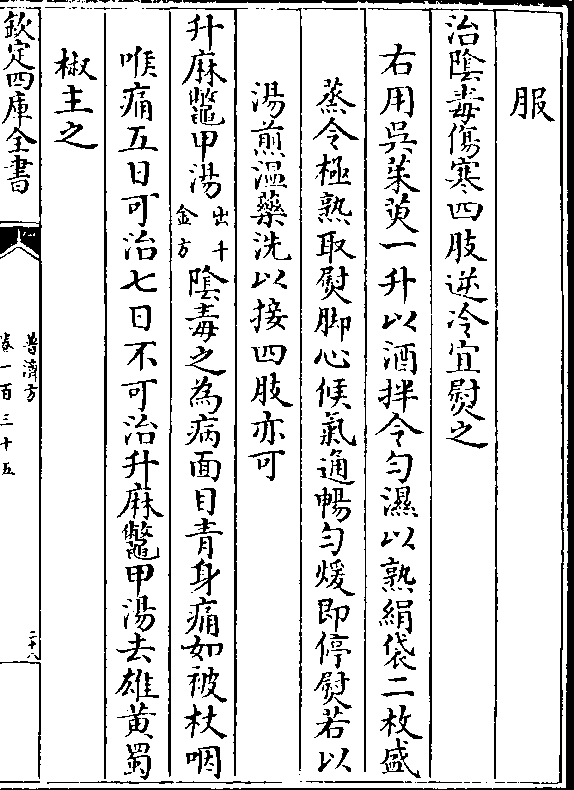 服
治陰毒傷寒四肢逆冷宜熨之
右用吳茱萸一升以酒拌令勻濕以熟絹袋二枚盛
蒸令極熟取熨脚心候氣通暢勻煖即停熨若以
湯煎溫藥洗以接四肢亦可
升麻鼈甲湯出千金方陰毒之為病面目青身痛如被杖咽
喉痛五日可治七日不可治升麻鼈甲湯去雄黃蜀
椒主之
欽定四庫全書
普濟方
卷一百三十五
二十八